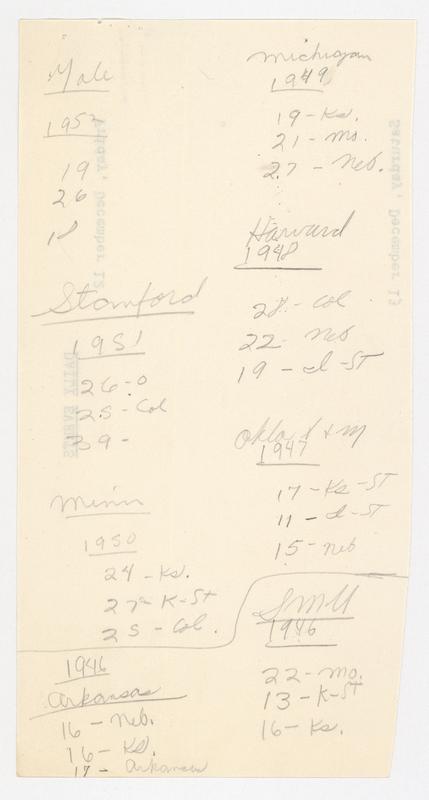 Yale
1952
19
26
18
Stanford
1951
26-0
25-Col
39-
Minn
1950
24-Ks.
27-K-St
25-Col.
1946
Arkansas
16-Neb.
16-Ks.
17-Arkansas
Michigan
1949
19-Ks.
21-Mo.
27-Neb.
Harvard
1948
28-Col
22-Neb
19-d-ST
Okla A & M
1947
17-Ks-ST
11-d-ST
15-Neb
SMU
1946
22-Mo.
13-K-ST
16-Ks.
Friday, December 12
DAILY EVENTS
Saturday, December 13